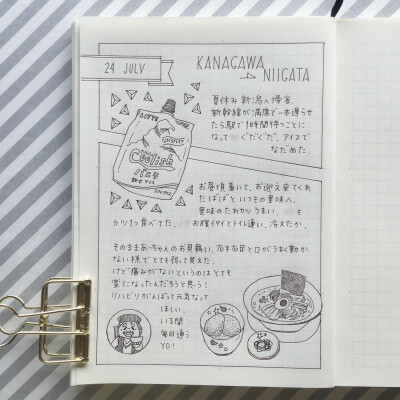 24 JULY
KANAGAWA
NIIGATA
夏休み 新潟へ帰省。
新幹線が満席で一本遅らせ
たら駅で1時間待つことに
なって ぐだぐだ。アイスで
なだめた。
LOTTE
Coolish
バニラ
お昼頃着いて、お迎え来てくれ
たばばと いつもの里味へ。
里味のたれカツうまい。 も
カツ1つ食べてた。 お腹イタイとトイレ通い、冷えたか。
そのままあーちゃんのお見舞い。左半左足と口がうまく動か
ない様でとても弱って見えた。
けど痛みがないというのはとても
楽になったんだろうと思う！
リハビリがんばって元気なって
ほしい。
いる間
毎日通う
YO!